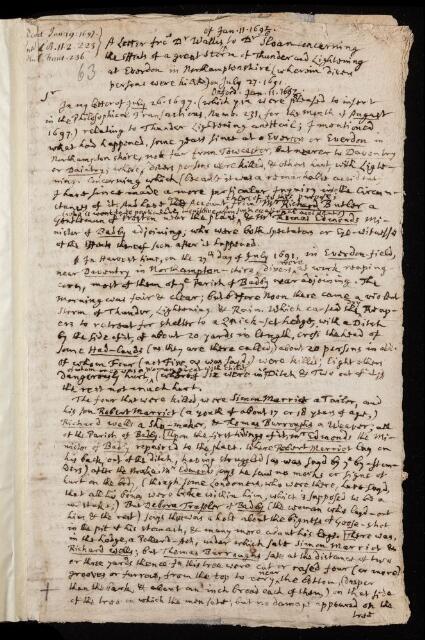 Read Jan. 19. 1697.
of Jan. 11. 1697.
A Letter from Dr Wallis to Dr Sloan concerning
the Effects of a great storm of Thunder and Lightning
at Everdon in Northamptonshire (wherein divers
persons were killed) on July 27. 1691.
63
Oxford. Jan. 11. 1697.
Sr
In my letter of July 26. 1697. (which you were pleased to insert
in the Philosophical Transactions, Numb. 231, for the Month of August
1697.) relating to Thunder Lightning and Hail; I mentioned
what had happened, some years since at Everton or Everdon in
Northamptonshire, not far from Towcester, but nearer to Daventry
or Daintry; where, divers persons were killed, & others hurt, with Light-
ning. Concerning which (because it was a remarkable accident)
I have since made a more particular inquiry into the Circum-
stances of it. And have the Account from Mr Richard Butler a
Gentleman of Preston near the place; & Mr Thomas Edmonds Mi-
nister of Badby adjoining, who were both spectators or Eye-witness
of the Effects thereof soon after it happened.
In Harvest time, on the 27th day of July 1691, in Everdon-field,
near Daventry in Northampton-shire, divers were at work reaping
corn, most of them of ye Parish of Badby near adjoining. The
morning was fair & clear; but before Noon there came a violent
storm of Thunder, Lightning, & Rain. Which caused the Reap-
ers to retreat for shelter to a Quick-set hedge, with a Ditch
by the side of it, of about 20 yards in length, cross the head of
some Had-lands (as they are there called) about 20 persons in all.
of whom Four (not Five as was said) were killed; Eight others
Dangerously hurt, were in Ditch & Two out of it
the rest not much hurt.
The four that were killed were Simon Marriot a Tailor, and
his son Robert Marriot (a youth of about 17 or 18 years of age,)
Richard Wells a Shoe-maker, & Thomas Burroughs a Weaver; all
of the Parish of Badby. Upon the first tidings of it, Mr Edmonds the Mi-
nister of Badby repaired to the place. Where Robert Marriot lay on
his back out of the ditch, having struggled (as was said by ye by-stan-
ders) after the stroke. Mr Edmonds says he saw no marks or signs of
hurt on the body, (though some Londoners, who were there, had said,
that all his bones were broke within him, which I suppose to be a
mistake,) But Debora Trasler of Badby (the woman who layd-out
him & the rest) says there was a hole about the bigness of a Goose-shot
in the pit of his stomach, & many more about his legs. There was,
in the hedge, a Pollard-Ash, under which sate Simon Marriot &
Richard Wells; but Thomas Burroughs sate at the distance of two
or three yards thence. In this tree were cut or rased four (or more)
grooves or furrows, from the top to very near the bottom (deeper
than the bark, & about an inch broad each of them) on that side
of the tree in which the men sate; but no damage appeared on the
tree